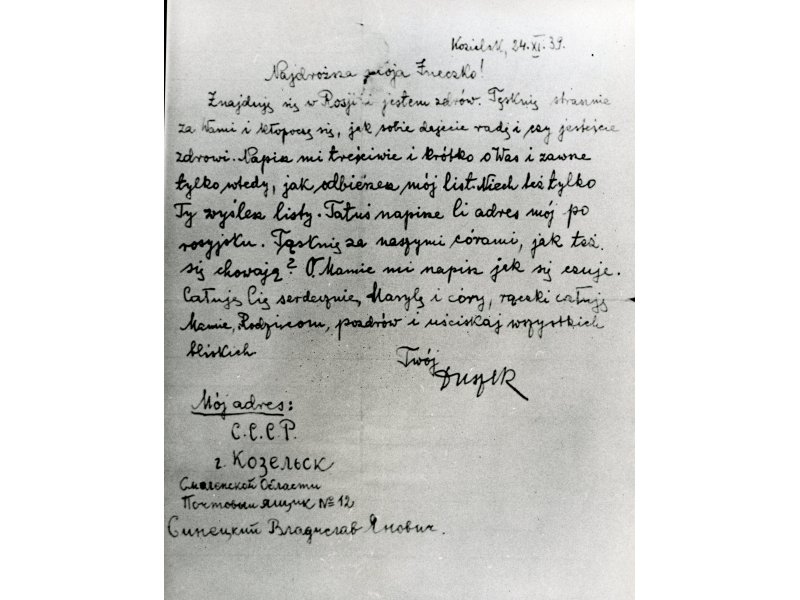 Kozielsk, 24.XI.39.
Najdroższa moja Żneczko!
Znajduję się w Rosji i jestem zdrów. Tęsknię strasznie
za Wami i kłopoczę się, jak sobie dajecie radę i czy jesteście
zdrowi. Napisz mi treściwie i krótko o Was i zawsze
tylko wtedy, jak odbierzesz mój list. Niech też tylko
Ty wyślesz listy. Tatuś napisze Ci adres mój po
rosyjsku. Tęsknię za naszymi córami, jak też
się chowają? O Mamie mi napisz jak się czuje.
Całuję Cię serdecznie, Marylę i córy, rączki całuję
Mamie, Rodzicom, pozdrów i uściskaj wszystkich
bliskich
Twój
Duszek
Mój adres:
С.С.С.Р.
г. Козельск
Смоленской Области
Почтовый ящик № 12
Синецкий Владислав Янович.